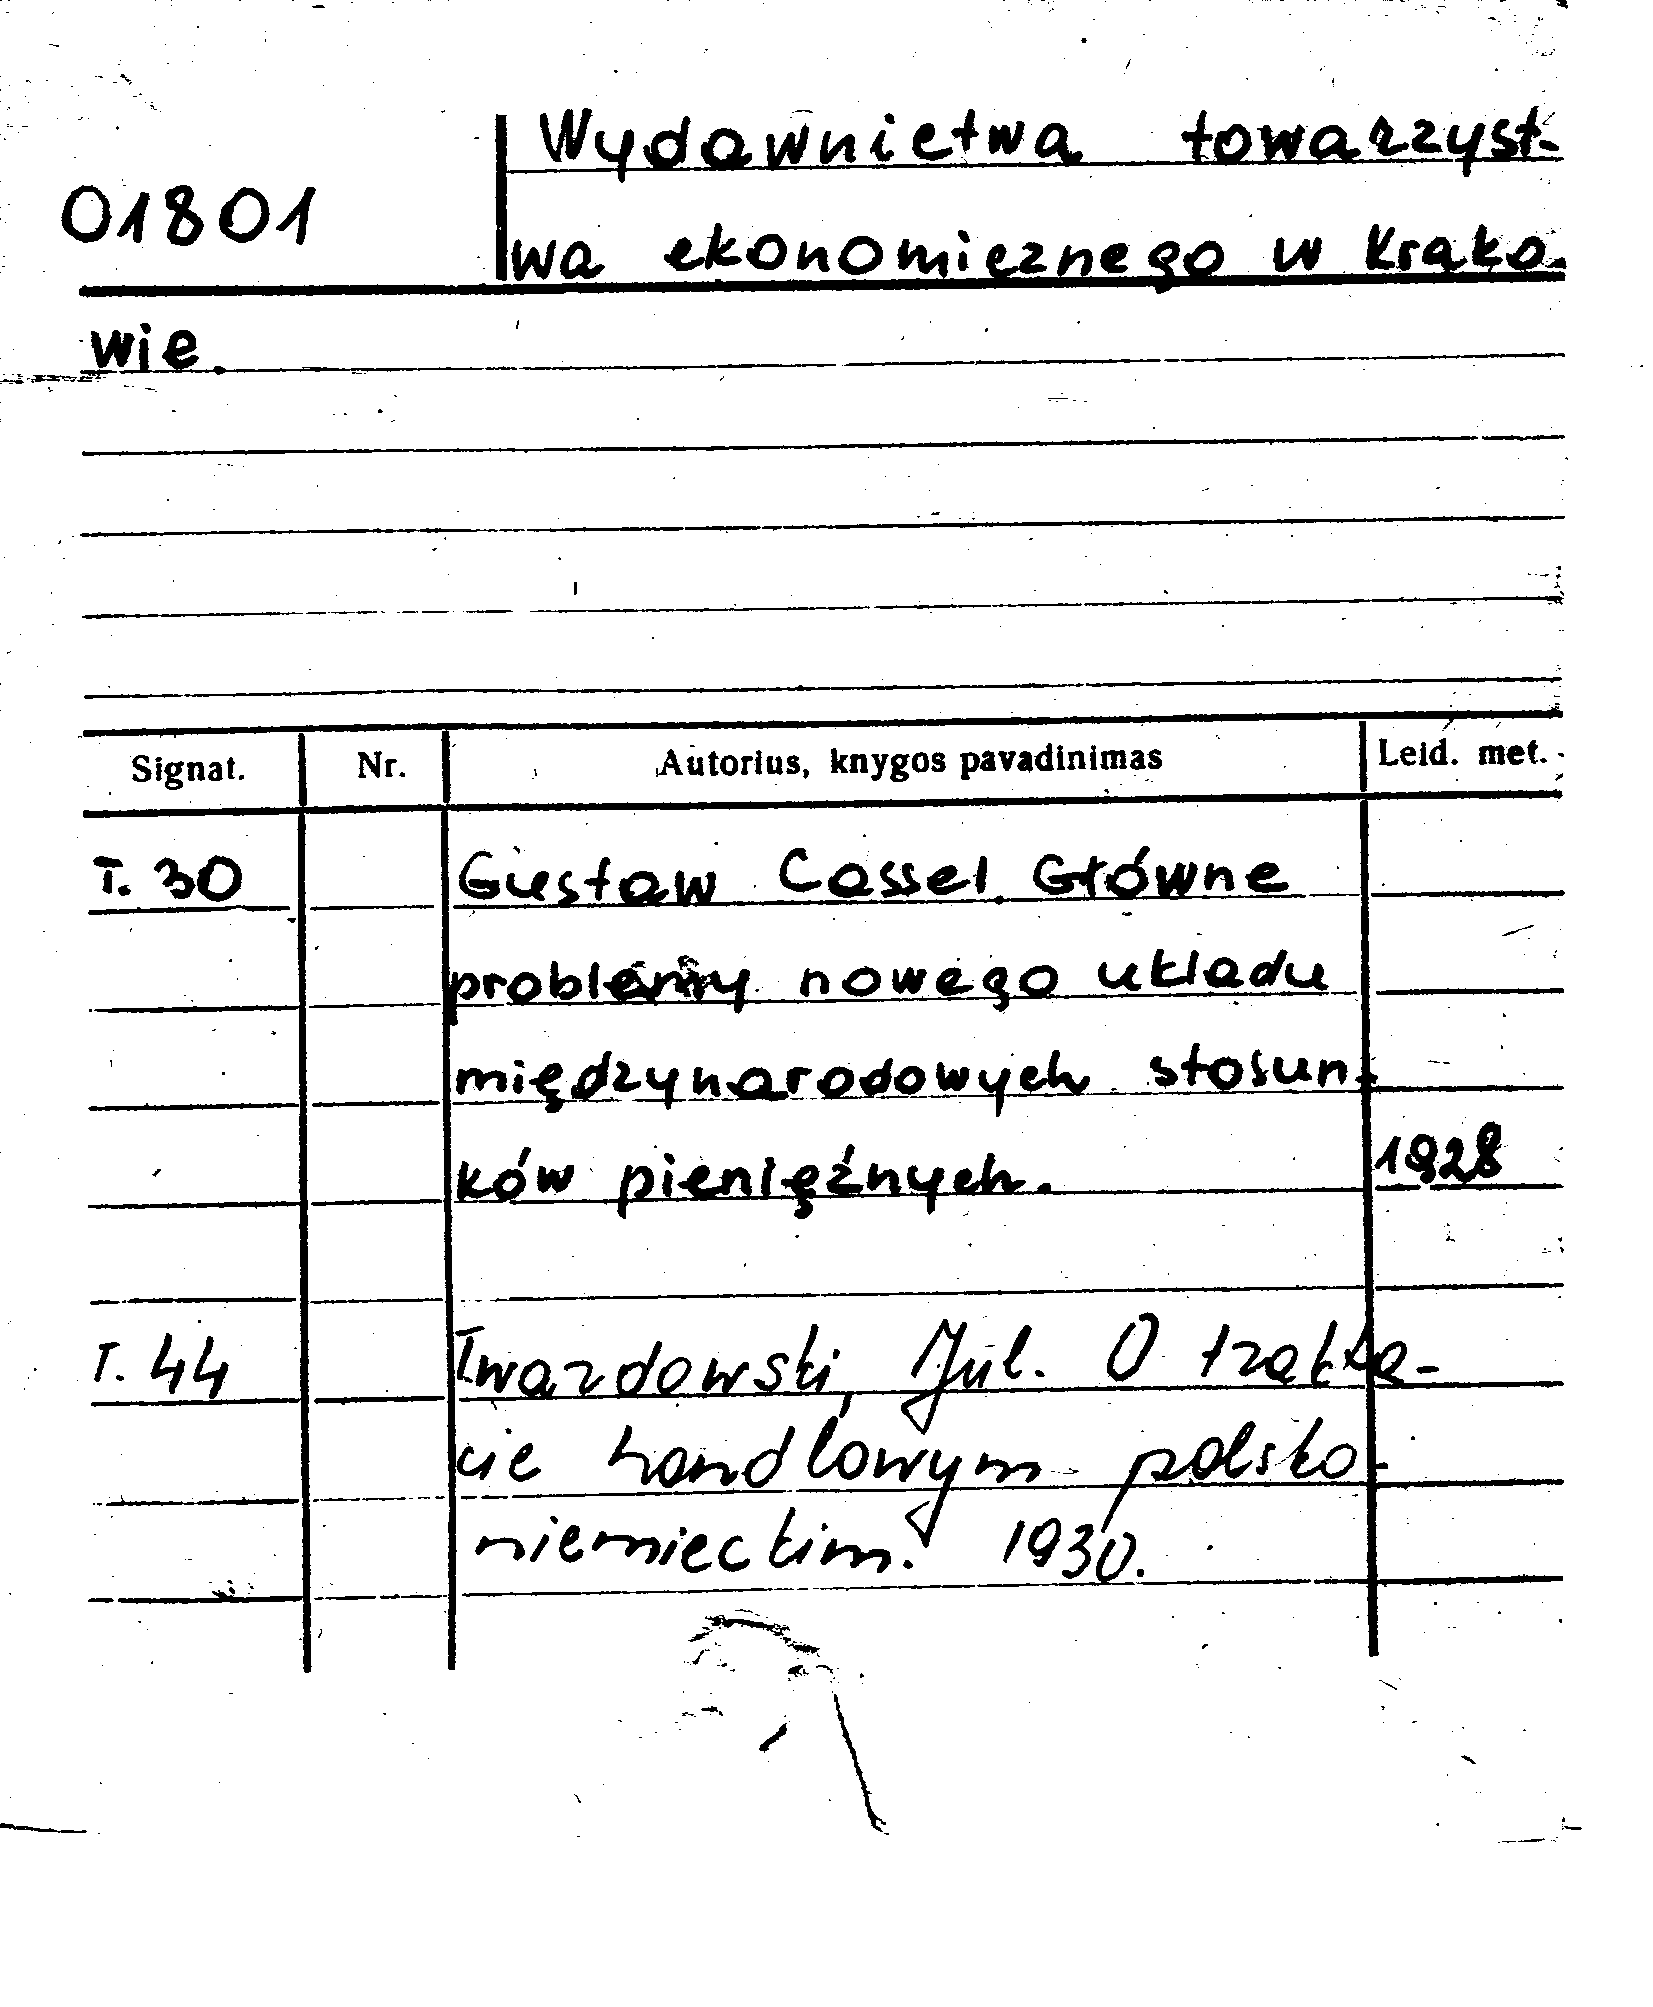 Wydawnictwa towarzyst-
01801
wa ekonomicznego w Krako-
wie.
Signat. Nr. Autorius, knygos pavadinimas Leid. met.
T. 30 Gustaw Cassel. Główne
problemy nowego układu
międzynarodowych stosun-
ków pieniężnych. 1928
T. 44 Twardowski, Jul. O trakta-
cie handlowym polsko-
niemieckim. 1930.